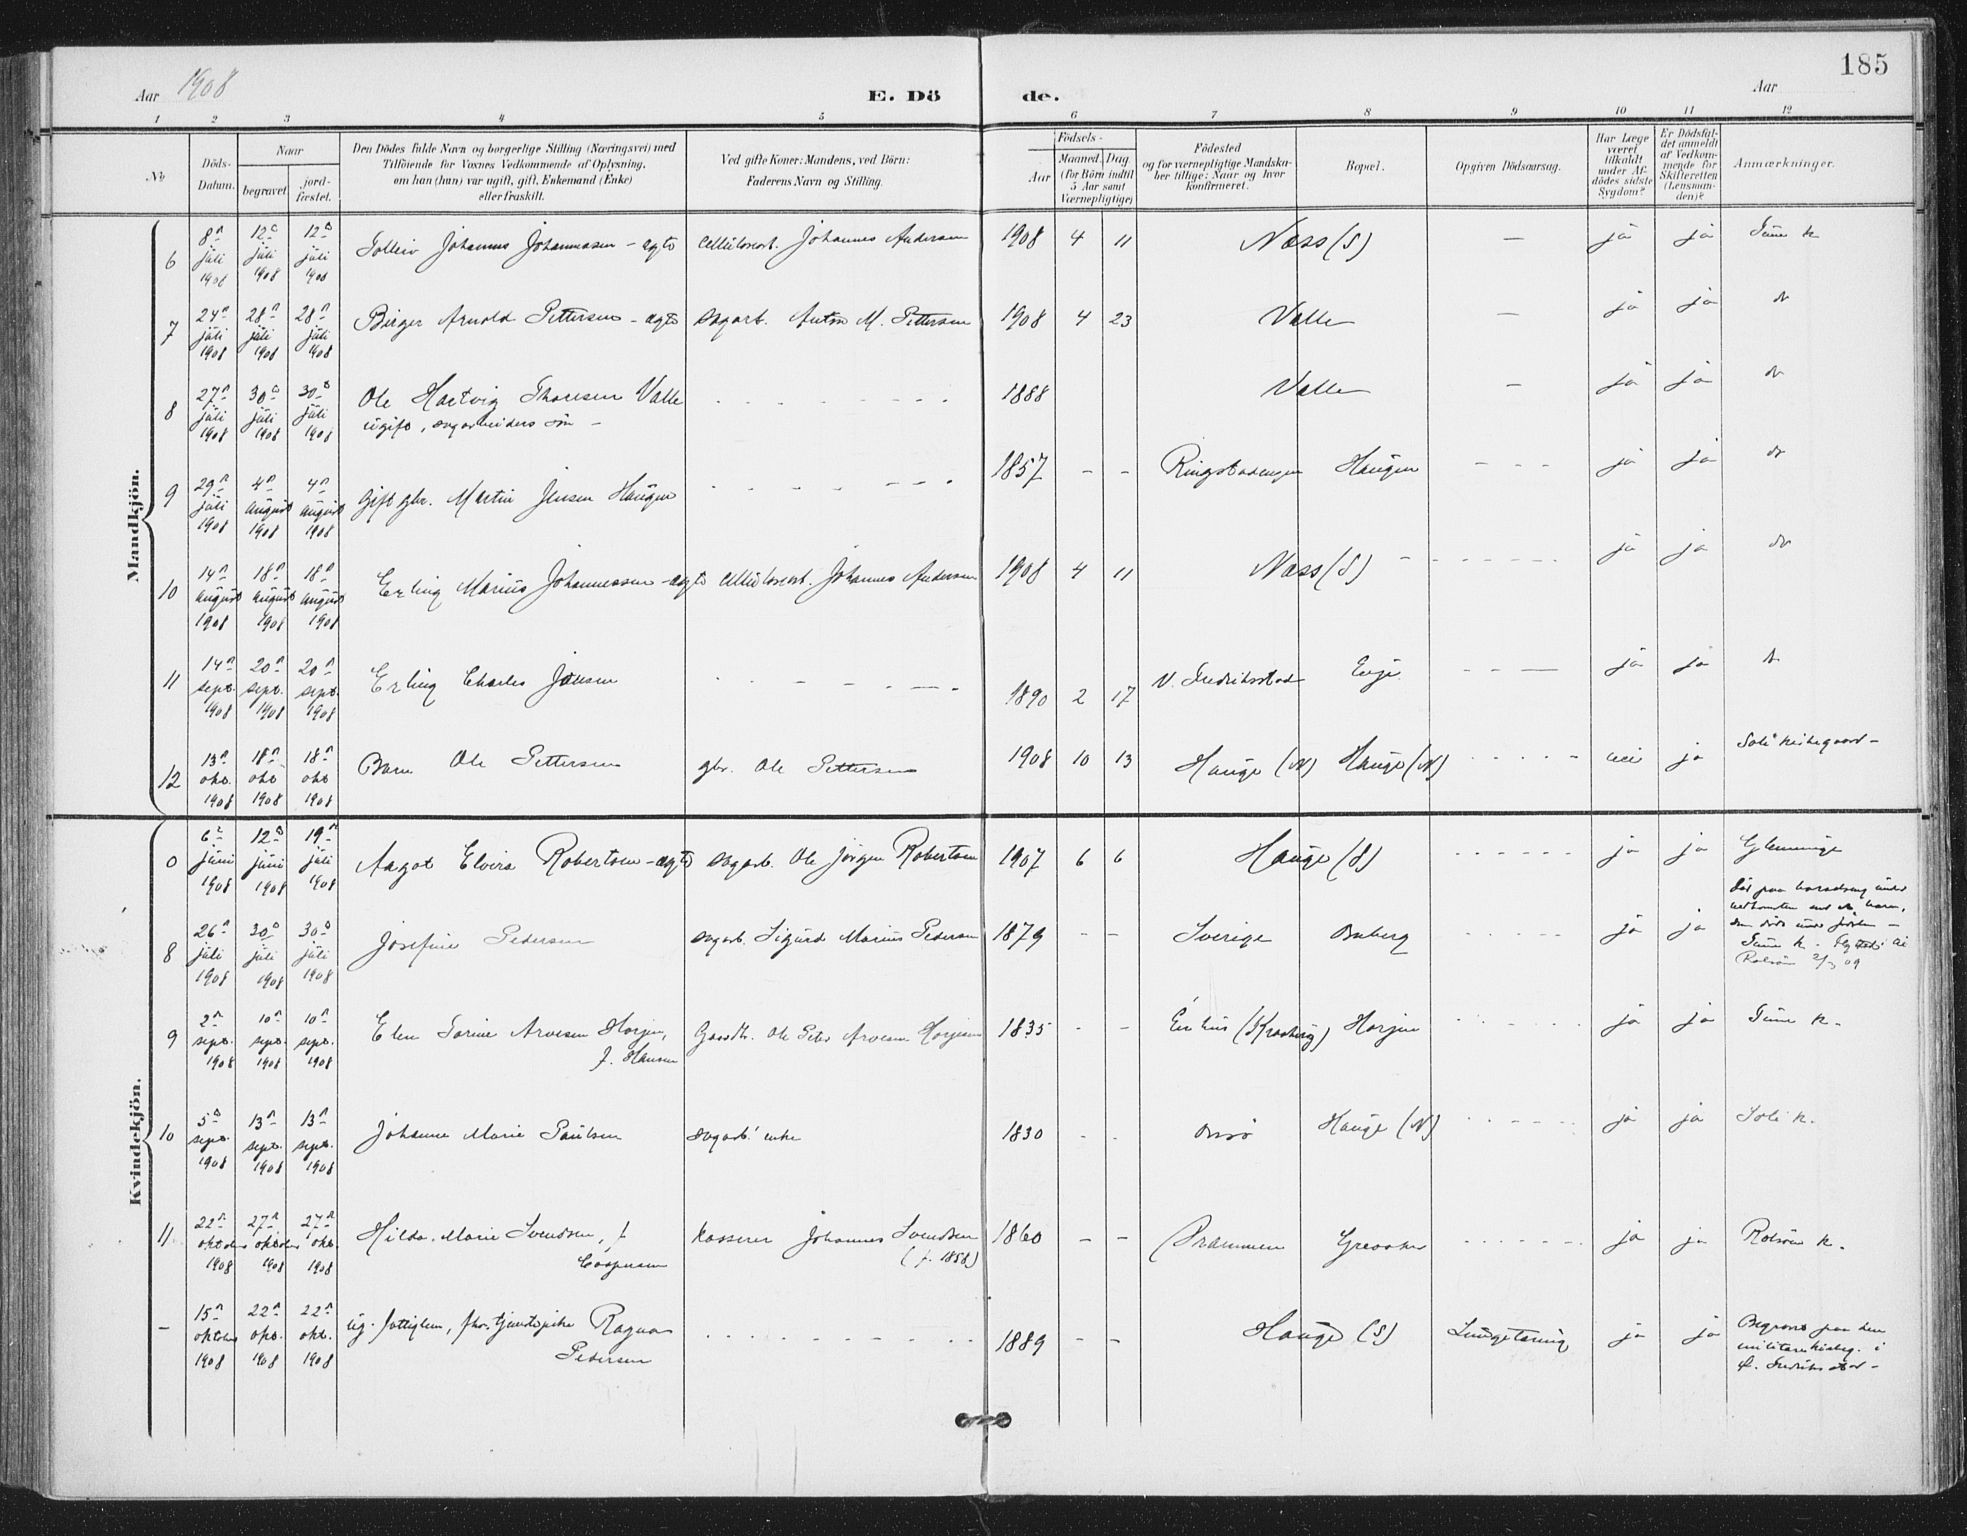 185
Aar 1908
E. Dö de.
Aar
1 2 3 4 5 6 7 8 9 10 11 12
No
Döds-Datum.
Naar
begravet
jord-fæstet.
Den Dödes fulde Navn og borgerlige Stilling (Næringsvei) med
Tilföiende for Voxnes Vedkommende af Oplysning,
om han (hun) var ugift, gift, Enkemand (Enke)
eller fraskilt.
Ved gifte Koner: Mandens, ved Börn:
Faderens Navn og Stilling.
Födsels-
Aar
Maaned. Dag.
(for Börn indtil
5 Aar samt
Værnepligtige)
Födested
og for værnepligtige Mandska-
ber tillige: Naar og hvor
Konfirmeret.
Bopæl.
Opgiven Dödsaarsag.
Har Læge
været
tilkaldt
under Af-
dödes sidste
Sygdom?
Er Dödsfal-
det anmeldt
af Vedkom-
mende for
Skifteretten
(Lensman-
den)?
Anmærkninger.
Mandkjön.
6 8de juli 1908 12te juli 1908 12te juli 1908 Johannes Johannessen - ægte Johannes Andersen 1908 4 11 Næss (S) — ja ja Tune k
7 24de juli 1908 28de juli 1908 28de juli 1908 Birger Arnold Pettersen - ægte sagarb. Anton M. Pettersen 1908 4 23 Valle — ja ja do
8 27de juli 1908 30te juli 1908 30te juli 1908 Ole Hartvig Thoresen Valle
ugift, sagarbeiders søn - 1888 Valle — ja ja do
9 29de juli 1908 4de august 1908 4de august 1908 Gift gbr. Martin Jensen Haugen 1857 - - Haugen - - - ja ja do
10 14de august 1908 18de august 1908 18de august 1908 Erling Marius Johannessen - ægte Johannes Andersen 1908 4 11 Næss (S) ja ja do
11 14de sept. 1908 20de sept. 1908 20de sept. 1908 Erling Charles Jensen 1890 2 17 V. Fredriksstad Enge ja ja do
12 13de okt. 1908 18de okt 1908 18de okt 1908 Barn Ole Pettersen gbr. Ole Pettersen 1908 10 13 Hauge (N) Hauge (N) nei ja Soli kirkegaard -
Kvindekjön.
0 6te juni 1908 12te juni 1908 19de juli 1908 Aagot Elvira Robertsen - ægte sagarb. Ole Jørgen Robertsen 1907 6 6 Hauge (S) ja ja Glemminge
8 26de juli 1908 30te juli 1908 30te juli 1908 Josefine Pedersen sagarb. Sigurd Marius Pedersen 1879 - - Sverige ja ja
Død paa barselseng under
barn,
Tune k. Flyttet til
Rolsø 2/3 09
9 2de sept. 1908 10de sept. 1908 10de sept. 1908 Elen Sørine Arvesen Horgen,
f. Hansen Gaardbr. Ole Peter Arvesen Horgen 1835 - - Horgen ja ja Tune k.
10 5te sept. 1908 13de sept. 1908 13de sept. 1908 Johanne Marie Paulsen sagarb. enke 1830 - - Onsø Hauge (N) ja ja Soli k.
11 22de oktober 1908 27de oktober 1908 27de okt. 1908 Hilda Marie Svendsen, f.
Kasserer Johannes Svendsen
(f. 1858) 1860 - - Drammen Greaaker ja ja Rolsø k.
- 15de oktober 1908 22de okt. 1908 22de okt. 1908 ug. fattiglem, fhv. tjenestepike Ragna
Pedersen 1889 - - Hauge (S) Lungetæring ja ja
Begravet paa den
militære kirkeg. i
Fredriksstad -